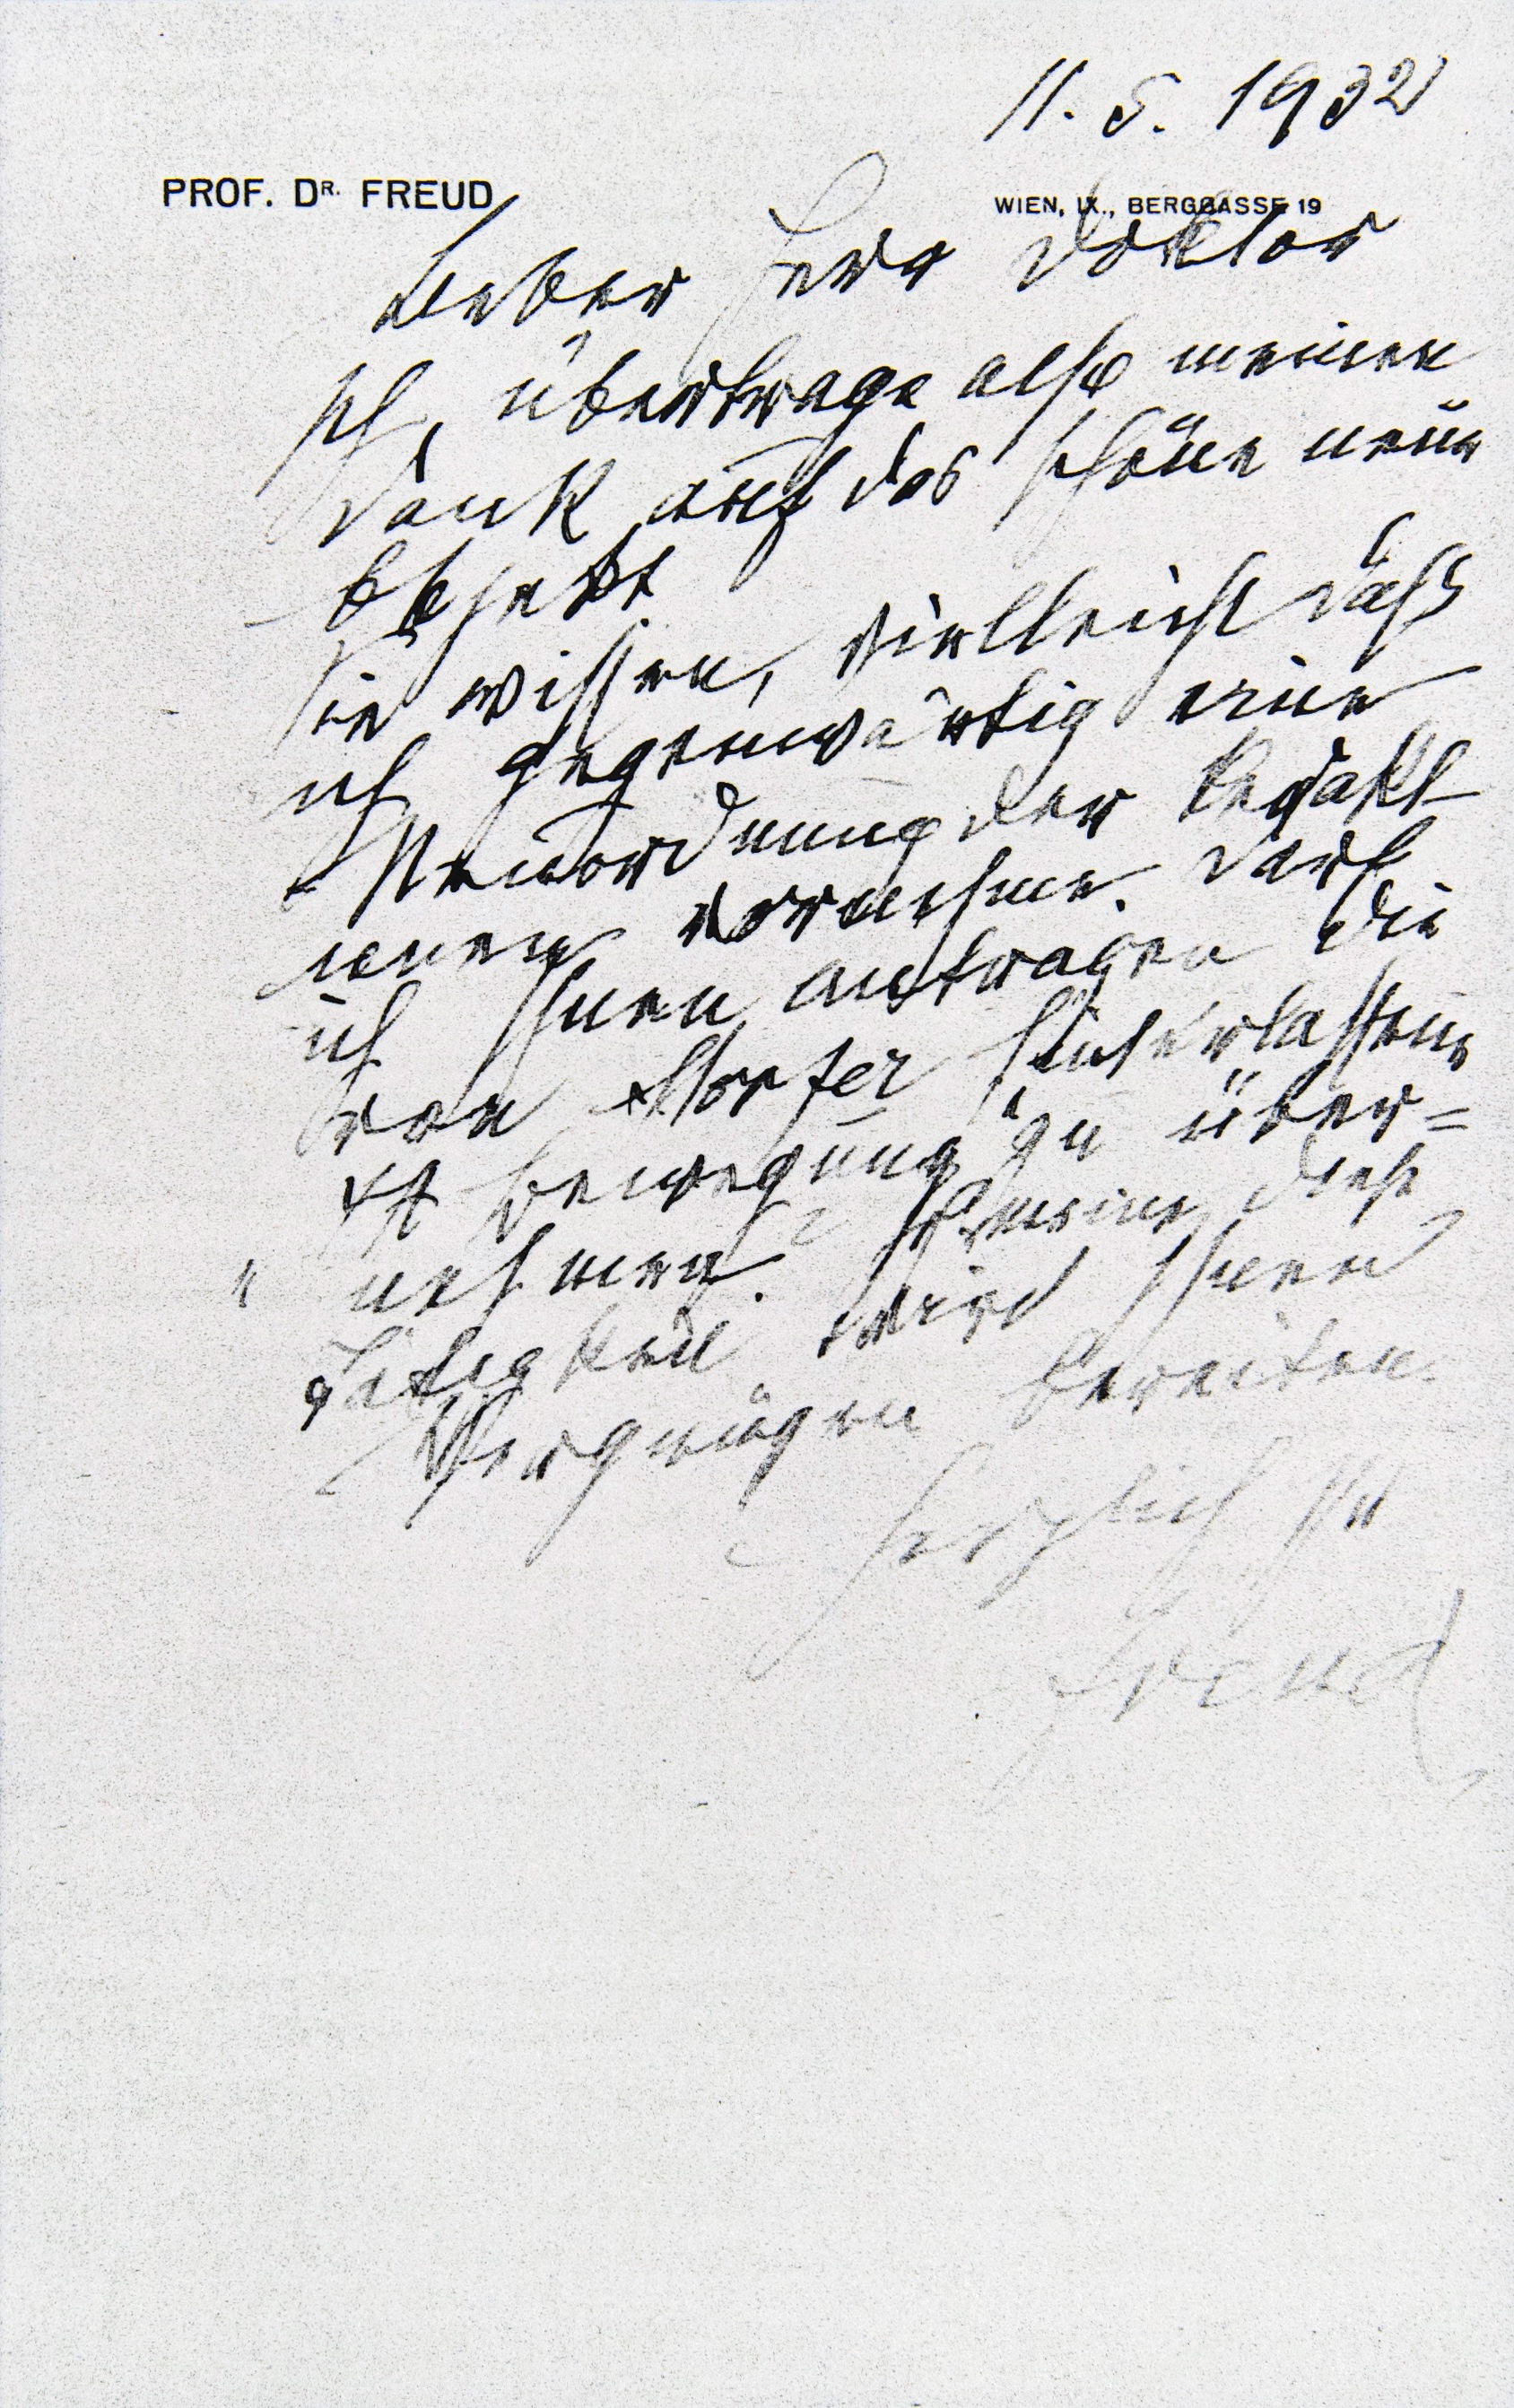 11. 5. 1932
PROF. DR. FREUD
WIEN, IX., BERGGASSE 19
Lieber Herr Doktor
Ich übertrage also meinen
Dank auf das schöne neue
Objekt
Sie wissen, vielleicht daß
ich gegenwärtig eine
Neuordnung der Redakt
ionen vornehme. Darf
ich Ihnen antragen die
von Storfer hinterlassene
ψA Bewegung zu über=
nehmen. diese
Tätigkeit wird Ihnen
Vergnügen bereiten.
Herzlich Ihr
Freud